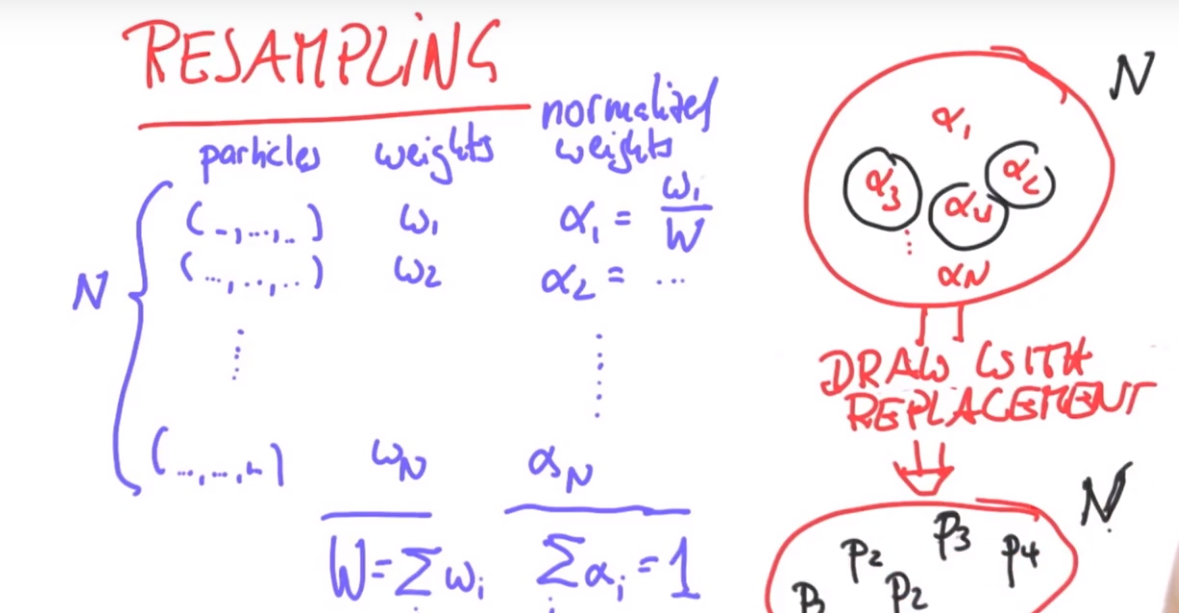 RESAMPLING
particles weights normalized weights
N
(-,...,..) ω₁ α₁ = ω₁/W
(...,..,..) ω₂ α₂ = ...
⋮ ⋮
(...,...,..) ωN αN
W=Σωᵢ Σαᵢ=1
i i
N
α₁
α₃ α₄ α₂
⋮
αN
DRAW WITH
REPLACEMENT
N
p₃
p₂ p₄
p₂